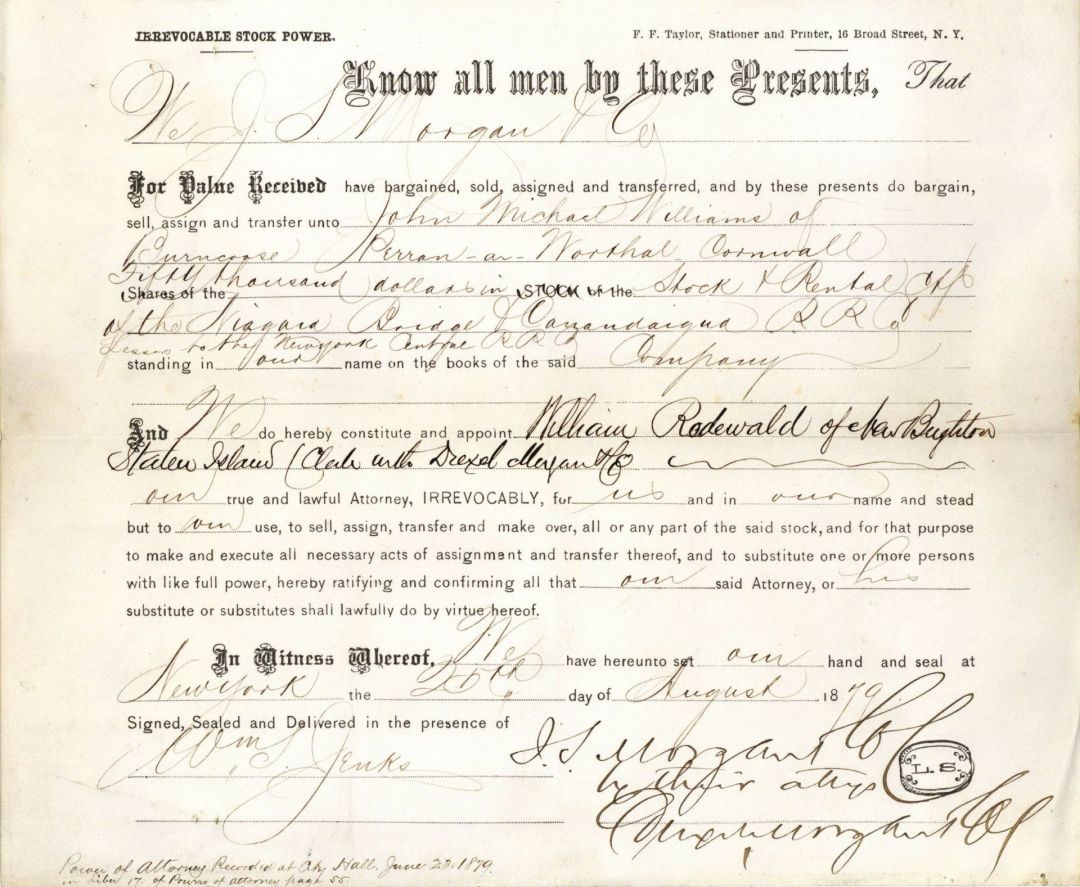 IRREVOCABLE STOCK POWER.
F. F. Taylor, Stationer and Printer, 16 Broad Street, N. Y.
Know all men by these Presents, That
We J. S. Morgan & Co
For Value Received have bargained, sold, assigned and transferred, and by these presents do bargain,
sell, assign and transfer unto John Michael Williams of
Burncoose Perran-ar-Worthal Cornwall
Fifty thousand dollars in Stock & Rental
Shares of the STOCK of the
of the Niagara Bridge & Canandaigua R R Co
Lessees to the New York Central R R Co
standing in our name on the books of the said Company
And We do hereby constitute and appoint William Redewald of New Brighton
Staten Island (Clerk with Drexel Morgan & Co
our true and lawful Attorney, IRREVOCABLY, for us and in our name and stead
but to our use, to sell, assign, transfer and make over, all or any part of the said stock, and for that purpose
to make and execute all necessary acts of assignment and transfer thereof, and to substitute one or more persons
with like full power, hereby ratifying and confirming all that our said Attorney, or his
substitute or substitutes shall lawfully do by virtue hereof.
In Witness Whereof, We have hereunto set our hand and seal at
New York the 25th day of August 1879
Signed, Sealed and Delivered in the presence of
Wm S. Jenks
J. S. Morgan & Co
L. S.
by their attys
Drexel Morgan & Co
Power of Attorney Recorded at City Hall. June 23. 1879.
in Liber 17. of Powers of attorney page 55.